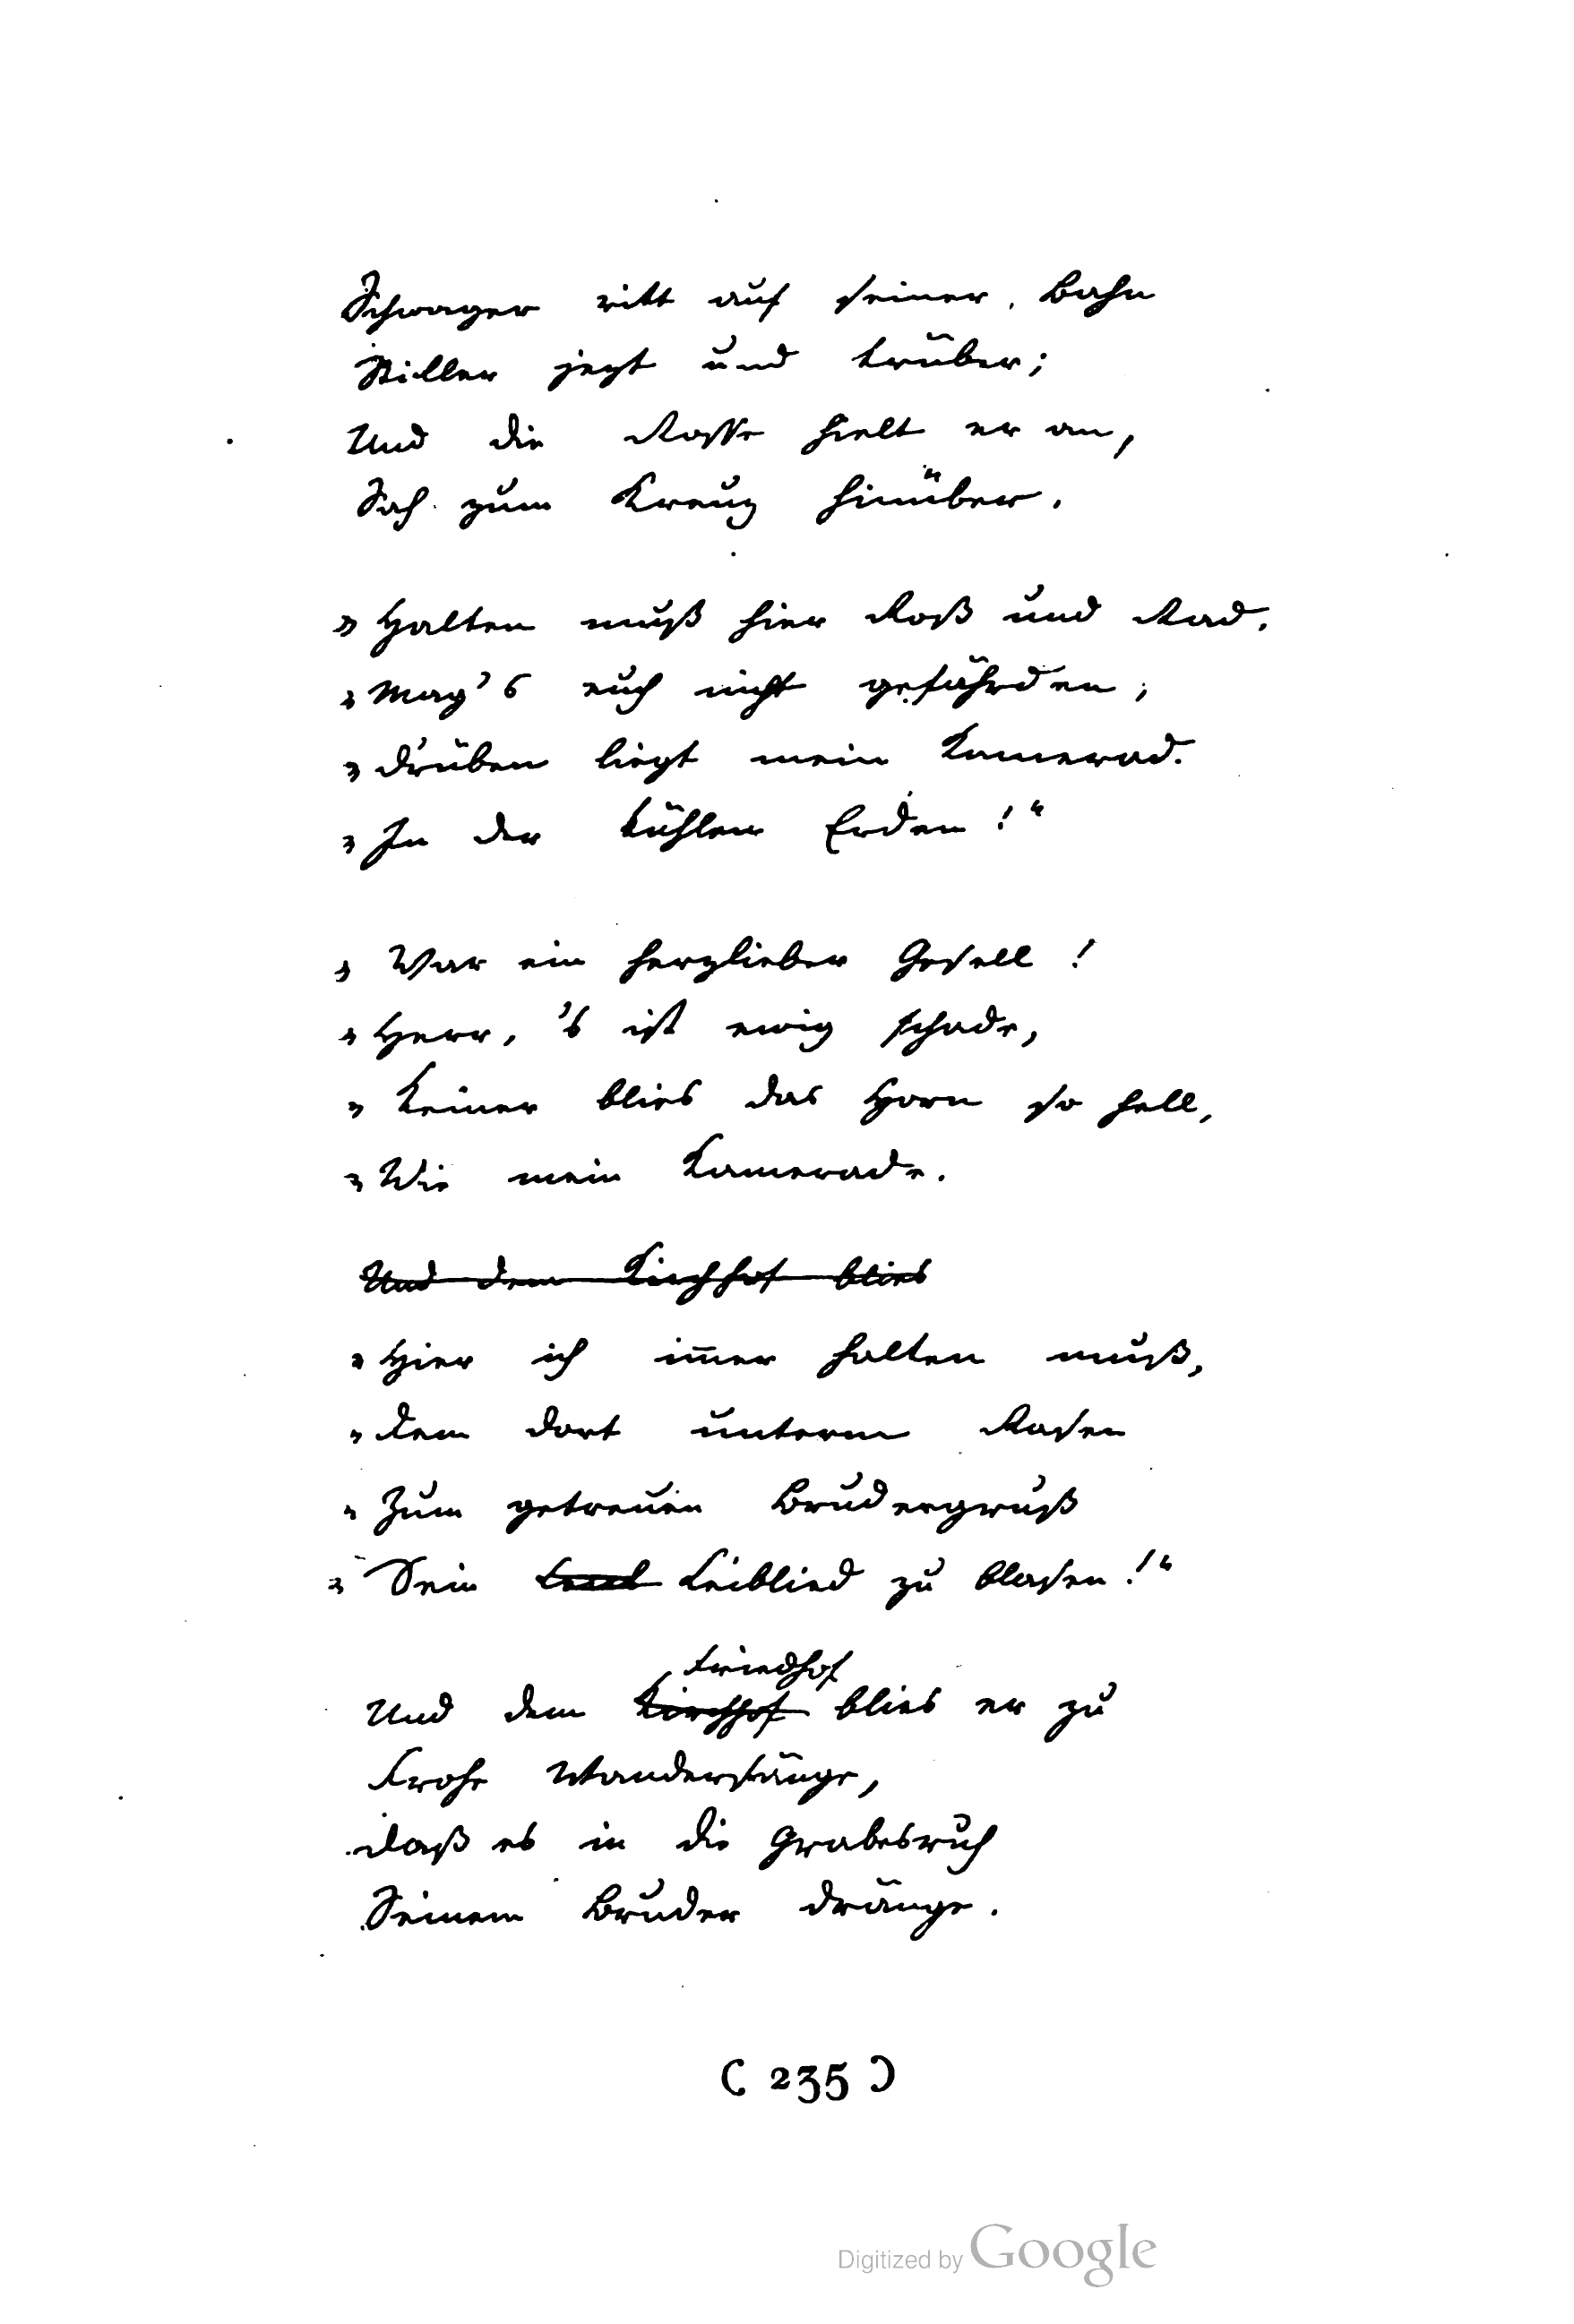 Schwager ritt auf seiner Bahn
Stiller jezt und trüber;
Und die Rosse hielt er an,
Sah zum Kreuz hinüber.
„Halten muß hier Roß und Rad.
„Mag's euch nicht gefährden;
„Drüben liegt mein Kamerad.
„In der kühlen Erden!“
„War ein herzlieber Gesell!
„Herr, 's ist ewig schade,
„Keiner blies das Horn so hell,
„Wie mein Kamerade.
Und dem Kirchhof blies
„Hier ich im̄er halten muß,
„Dem dort unterm Rasen
„Zum getreuen Brudergruß
„Sein Leiblied zu blasen!“
Friedhof
Und dem Kirchhof blies er zu
Frohe Wandersänge,
Daß es in die Grabesruh
Seinem Bruder dränge.
( 235 )
Digitized by Google